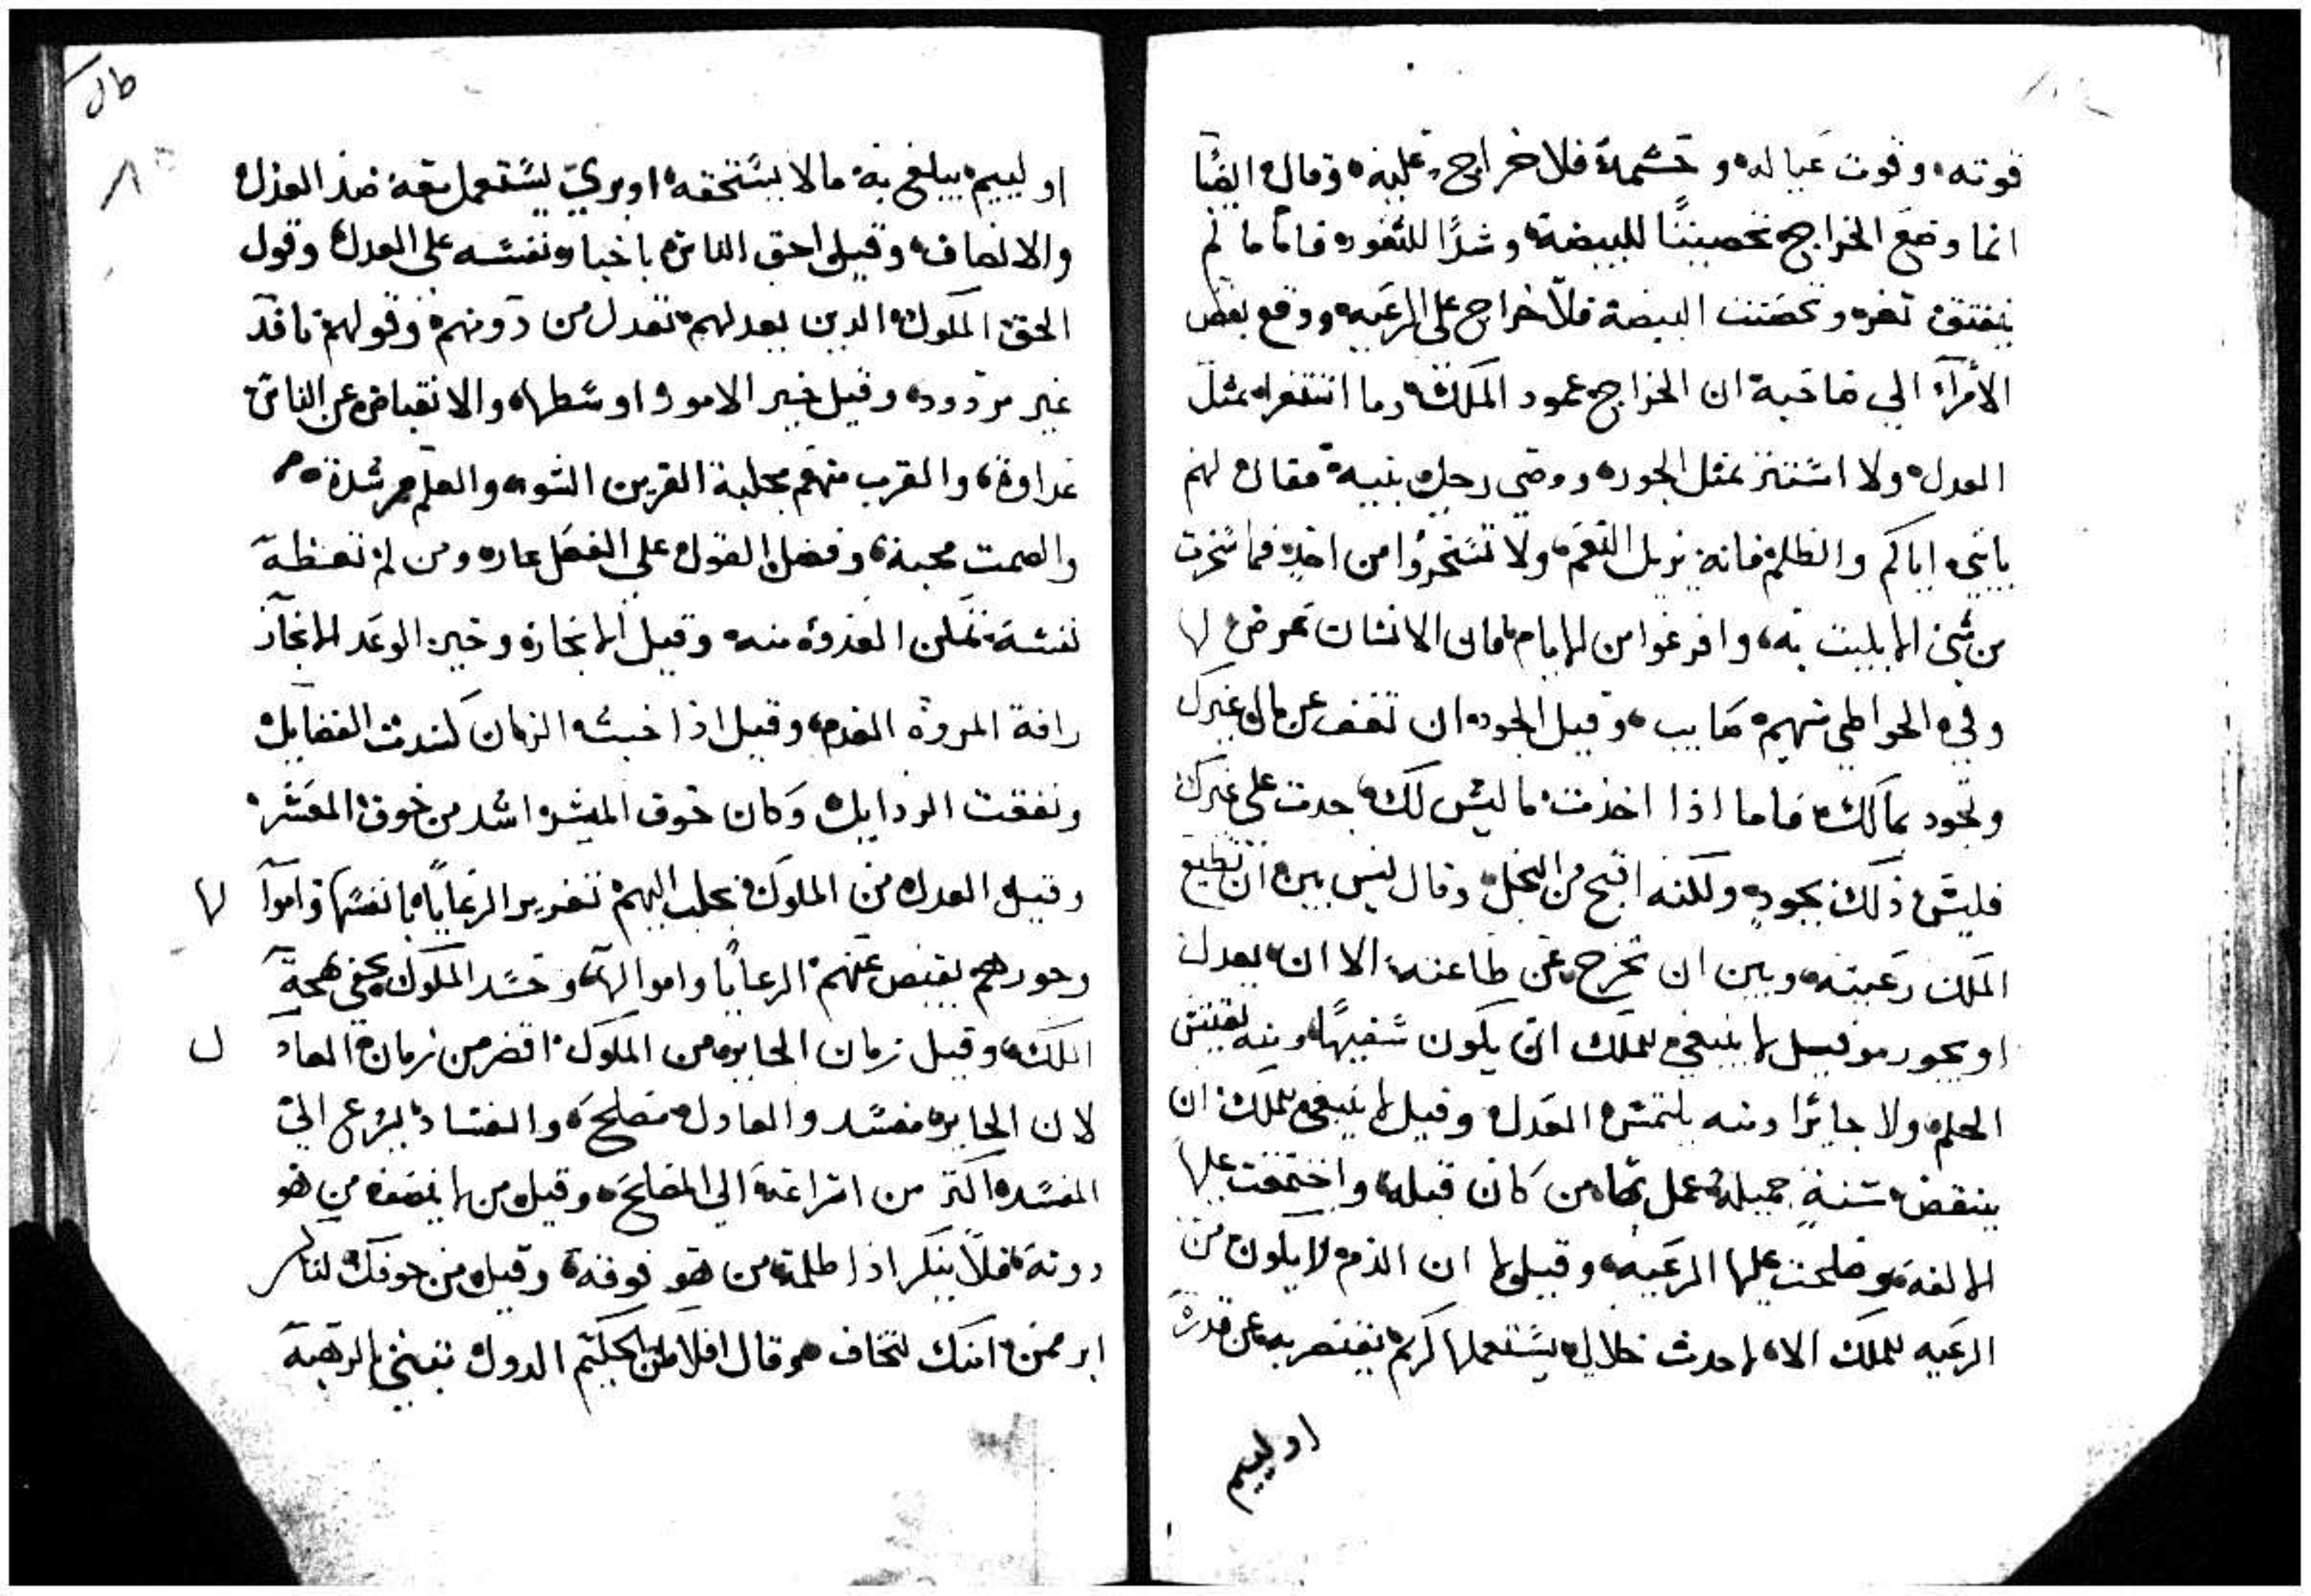 قوته وقوت عياله وحشمه فلا خراج عليه وقال ايضًا
انما وضع الخراج تحصينًا للبيضة وشدًا للثغور فاما ما لم
ينفتق ثغر وتحصنت البيضة فلا خراج على الرعيه ووقع بعض
الأمرآء الي صاحبه ان الخراج عمود الملك وما استغزر بمثل
العدل ولا استنزر بمثل الجور ووصي رجل بنيه فقال لهم
يا بني اياكم والظلم فانه يزيل النعم ولا تسخروا من احد فما سخرت
من شي الا بليت به وافرغوا من الايام فان الانسان عرض لها
وفي الخواطي سهم صايب وقيل الجود ان تعف عن مال غيرك
وتجود بمالك فاما اذا اخذت ما ليس لك جدت على غيرك
فليس ذلك بجود ولكنه اقبح من البخل وقال ليس بين ان تطيع
الملك رعيته وبين ان تخرج عن طاعته الا ان يعدل
او يجور وقيل لا ينبغي للملك ان يكون سفيهًا ومنه يقتبس
الحلم ولا جائرا ومنه يلتمس العدل وقيل لا ينبغي للملك ان
ينقض سنة جميلة عمل بها من كان قبله واجتمعت عليها
الالفة وصلحت عليها الرعيه وقيل ان الذم لا يكون من
الرعيه للملك الا لاحدث خلال يستعملها كريم يقتصر به عن قدره
او لييم
او لييم يبلغ به ما لا يستحقه او بري يستعمل معه ضد العدل
والانصاف وقيل احق الناس باجبار نفسه على العدل وقول
الحق الملوك الذين بعدلهم تعدل من دونهم وقولهم نافذ
غير مردود وقيل خير الامور اوسطها والانقباض عن الناس
عداوة والقرب منهم مجلبة القرين السوء والعلم مرشدة
والصمت محبة وفضل القول على الفعل عار ومن لم تعظه
نفسه تمكن العدو منه وقيل الانجاز وخير الوعد الانجاز
رافة المروة العدم وقيل اذا خبث الزمان كسدت الفضايل
ونفقت الردايل وكان خوف الميسر اشد من خوف المعسر
وقيل العدل من الملوك يجلب اليهم تغرير الرعايا بانفسها واموا لها
وجورهم يقبض عنهم الرعايا واموالها وحسد الملوك يخفي بهجة
الملك وقيل زمان الجاير من الملوك اقصر من زمان العاد ل
لان الجاير مفسد والعادل مصلح والفساد يسرع الي
المفسد اكثر من اسراعه الي المصلح وقيل من لا ينصف من هو
دونه فلا ينكر اذا ظلمه من هو فوقه وقيل من خوفك لتامن
ابر ممن امنك لتخاف وقال افلاطن الحكيم الدول تبتني بالرهبة